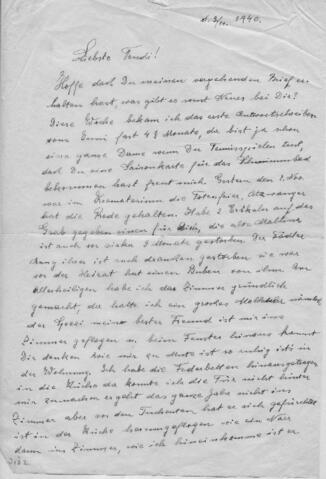 d. 3/11. 1940.
Liebste Trudi!
Hoffe daß Du meinen vorgehenden Brief er-
halten hast, was gibt es sonst Neues bei Dir?
Diese Woche bekam ich das erste Antwortschreiben
von fast 4 ½ Monate, da bist ja schon
eine ganze Dame wenn Du Tennisspielen tust,
daß Du eine Saisonkarte für das Schwimmbad
bekommen hast freut mich. Gestern den 1. Nov.
war im Krematorium die Totenfeier,
hat die Rede gehalten. Habe 2 Erikas auf das
Grab gegeben einen für die alte
ist auch vor zirka 3 Monate gestorben. Die
ist auch gestorben sie war
vor der Heirat hat einen Buben von ihm. Vor
Allerheiligen habe ich das Zimmer gründlich
gemacht, da hatte ich ein großes
der meine bester Freund ist mir ins
Zimmer geflogen u. beim Fenster hinaus kannst
Dir denken wie mir zu Mute ist so ruhig ist in
der Wohnung. Ich habe die Federbetten hinausgetragen
in die Küche da konnte ich die Tür nicht hinter
mir zumachen er geht das ganze Jahr nicht ins
Zimmer aber vor den Tuchenten hat er sich gefürchtet
ist in der Küche herumgeflogen wie ein Narr
dann ins Zimmer, wie ich hineinkomme ist er